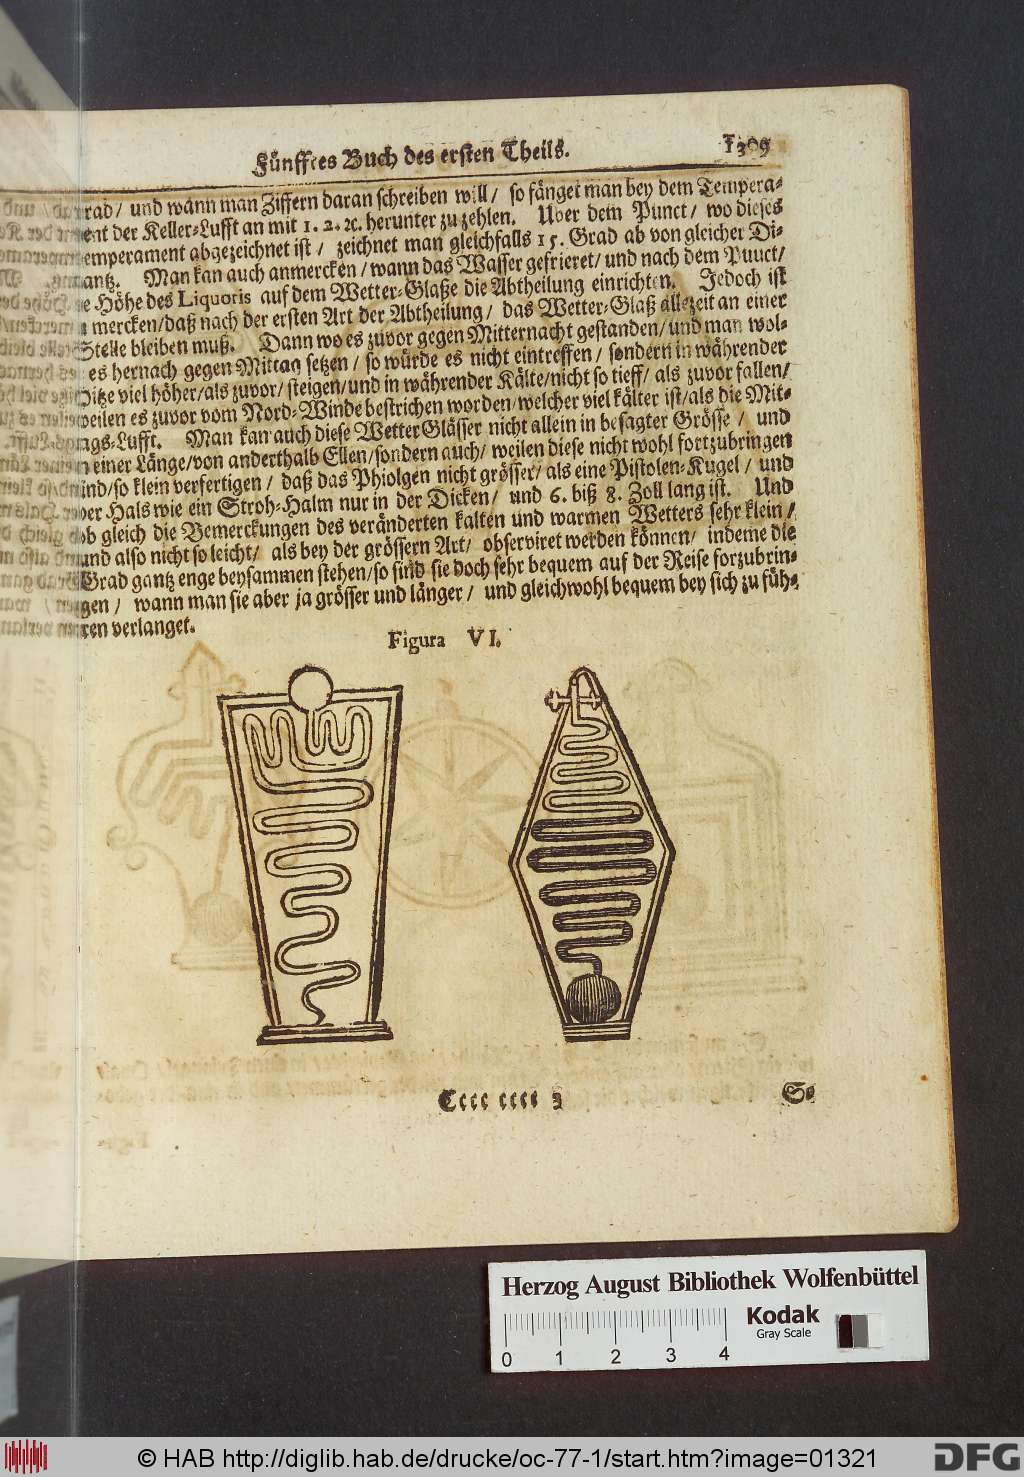 Fünfftes Buch des ersten Theils. 1309
rad / und wann man Ziffern daran schreiben will / so fänget man bey dem Tempera-
ment der Keller-Lufft an mit 1. 2. ꝛc. herunter zu zehlen. Uber dem Punct / wo dieses
emperament abgezeichnet ist / zeichnet man gleichfalls 15. Grad ab von gleicher Di-
antz. Man kan auch anmercken / wann das Wasser gefrieret / und nach dem Punct /
e Höhe des Liquoris auf dem Wetter-Glaße die Abtheilung einrichten. Jedoch ist
mercken / daß nach der ersten Art der Abtheilung / das Wetter-Glaß allezeit an einer
Stelle bleiben muß. Dann wo es zuvor gegen Mitternacht gestanden / und man wol-
es hernach gegen Mittag setzen / so würde es nicht eintreffen / sondern in währender
Hitze viel höher / als zuvor / steigen / und in währender Kälte / nicht so tieff / als zuvor fallen /
weilen es zuvor vom Nord-Winde bestrichen worden / welcher viel kälter ist / als die Mit-
tags-Lufft. Man kan auch diese Wetter Gläser nicht allein in besagter Grösse / und
einer Länge / von anderthalb Ellen / sondern auch / weilen diese nicht wohl fortzubringen
ind / so klein verfertigen / daß das Phiolgen nicht grösser / als eine Pistolen-Kugel / und
der Hals wie ein Stroh-Halm nur in der Dicken / und 6. biß 8. Zoll lang ist. Und
ob gleich die Bemerckungen des veränderten kalten und warmen Wetters sehr klein /
und also nicht so leicht / als bey der grössern Art / observiret werden können / indeme die
Grad gantz enge beysammen stehen / so sind sie doch sehr bequem auf der Reise forzubrin-
gen / wann man sie aber ja grösser und länger / und gleichwohl bequem bey sich zu füh-
ren verlanget.
Figura VI.
Cccc cccc 3 So
Herzog August Bibliothek Wolfenbüttel
Kodak
Gray Scale
0 1 2 3 4
© HAB http://diglib.hab.de/drucke/oc-77-1/start.htm?image=01321
DFG